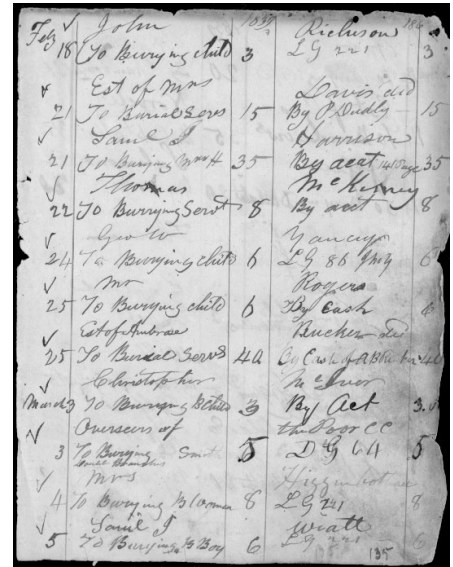 John Richeson
Feb 18 To Burying child 3 LG 221 3
Est of Mrs Davis decd
21 To Burial Servs 15 By P. Dudly 15
Saml J Harrison
21 To Burying Mrs H 35 By acct 35
Thomas McKinney
22 To Burrying Servt 8 By acct 8
Geo W Yancy
24 To Burying child 6 LG 86 6
Mr Rogers
25 To Burying child 6 By Cash 6
Est of Ambrose Rucker decd
25 To Burial Servs 40
Christopher
March 3 To Burying B Child 3 By Act 3
Overseers of the Poor CC
3 To Burying 5 DG 64 5
Mrs
4 To Burying B woman 8 LG 221 8
Saml J Wiatt
5 To Burying B Boy 6 LG 221 6
135